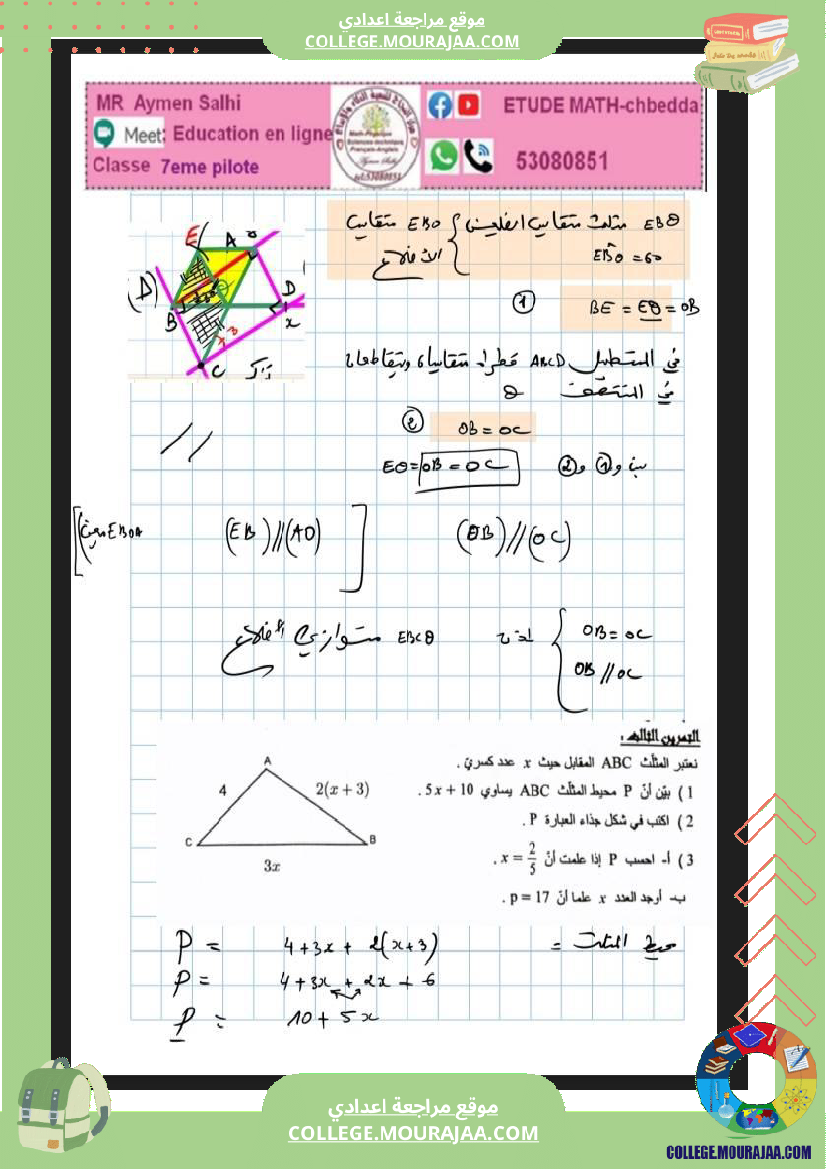 موقع مراجعة اعدادي
COLLEGE.MOURAJAA.COM
MR Aymen Salhi
Meet: Education en ligne
Classe 7eme pilote
ETUDE MATH-chbedda
53080851
E
A
D
B
x
C
EBO مثلث متقايس الضلعين
EBO متقايس الأضلاع
EB̂O = 60
① BE = EO = OB
في المستطيل ABCD قطراه متقايسان ويتقاطعان
في المنتصف O
② OB = OC
① و ②
EO = OB = OC
(OB) // (OC)
(EB) // (AO)
EBOA
OB = OC
OB // OC
إذن EBCO متوازي الأضلاع
التمرين الثالث :
نعتبر المثلث ABC المقابل حيث x عدد كسري .
1 ) بيّن أنّ P محيط المثلث ABC يساوي 5x + 10 .
2 ) اكتب في شكل جذاء العبارة P .
3 ) أ- احسب P إذا علمت أنّ x = 2/5 .
ب- أوجد العدد x علما أنّ p = 17 .
A
4
2(x + 3)
C
B
3x
محيط المثلث =
P = 4 + 3x + 2(x+3)
P = 4 + 3x + 2x + 6
P = 10 + 5x
موقع مراجعة اعدادي
COLLEGE.MOURAJAA.COM
COLLEGE.MOURAJAA.COM